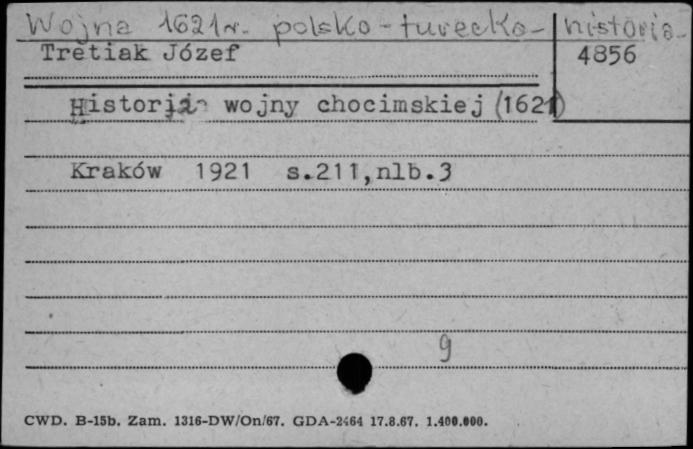 Wojna 1621r. polsko-turecka- historia-
Tretiak Józef 4856
Historja wojny chocimskiej (1621)
Kraków 1921 s.211,nlb.3
9
CWD. B-15b. Zam. 1316-DW/On/67. GDA-2464 17.8.67. 1.400.000.